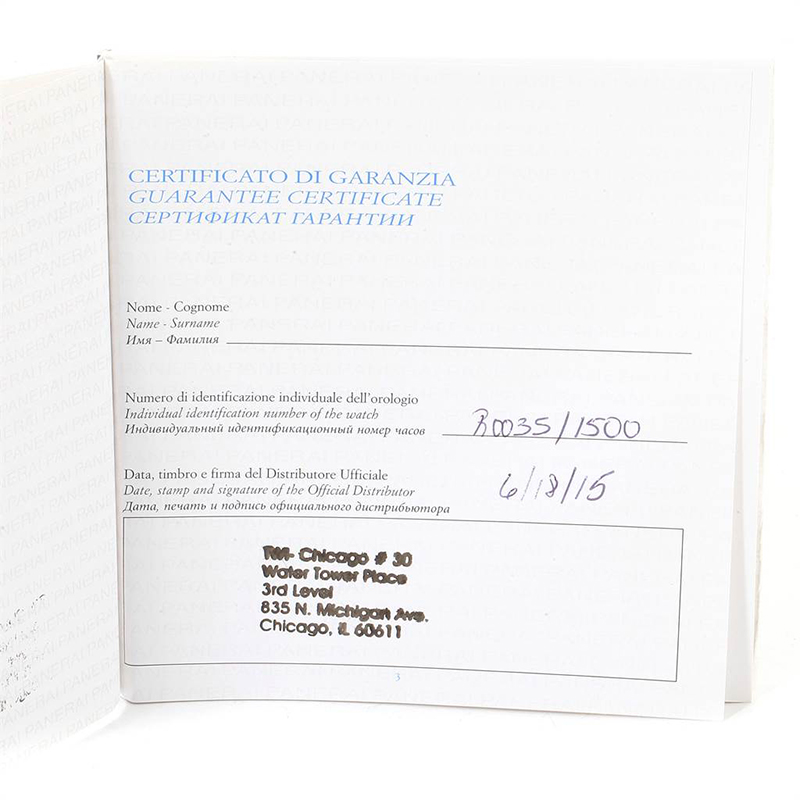 CERTIFICATO DI GARANZIA
GUARANTEE CERTIFICATE
СЕРТИФИКАТ ГАРАНТИИ
Nome - Cognome
Name - Surname
Имя – Фамилия
Numero di identificazione individuale dell'orologio
Individual identification number of the watch
Индивидуальный идентификационный номер часов
R0035/1500
Data, timbro e firma del Distributore Ufficiale
Date, stamp and signature of the Official Distributor
Дата, печать и подпись официального дистрибьютора
6/18/15
Chicago # 30
Water Tower Place
3rd Level
835 N. Michigan Ave.
Chicago, IL 60611
3